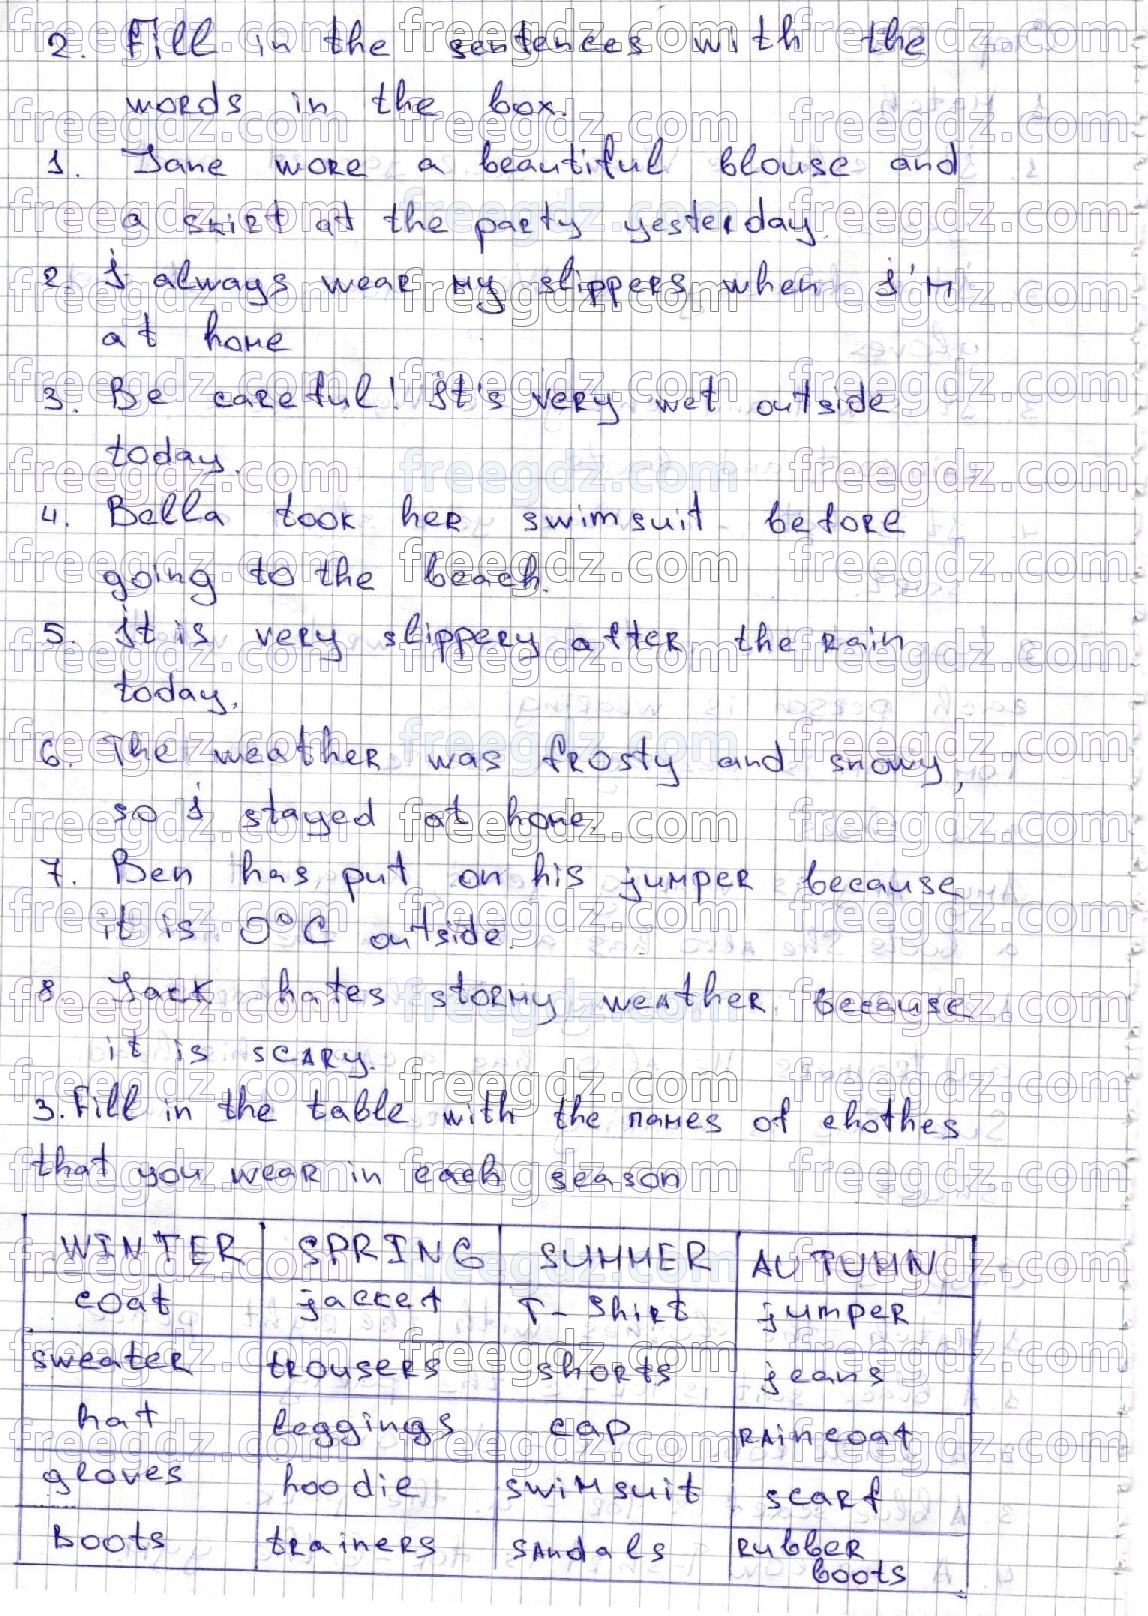 2. Fill in the sentences with the
words in the box.
1. Jane wore a beautiful blouse and
a skirt at the party yesterday.
2. I always wear my slippers when I'm
at home
3. Be careful! It's very wet outside
today.
4. Bella took her swimsuit before
going to the beach.
5. It is very slippery after the rain
today.
6. The weather was frosty and snowy,
so I stayed at home.
7. Ben has put on his jumper because
it is 0°C outside.
8. Jack hates stormy weather because
it is scary.
3. Fill in the table with the names of chothes
that you wear in each season
WINTER SPRING SUMMER AUTUMN
coat jacket T-shirt jumper
sweater trousers shorts jeans
hat leggings cap raincoat
gloves hoodie swimsuit scarf
Boots trainers sandals rubber
boots
freegdz.com